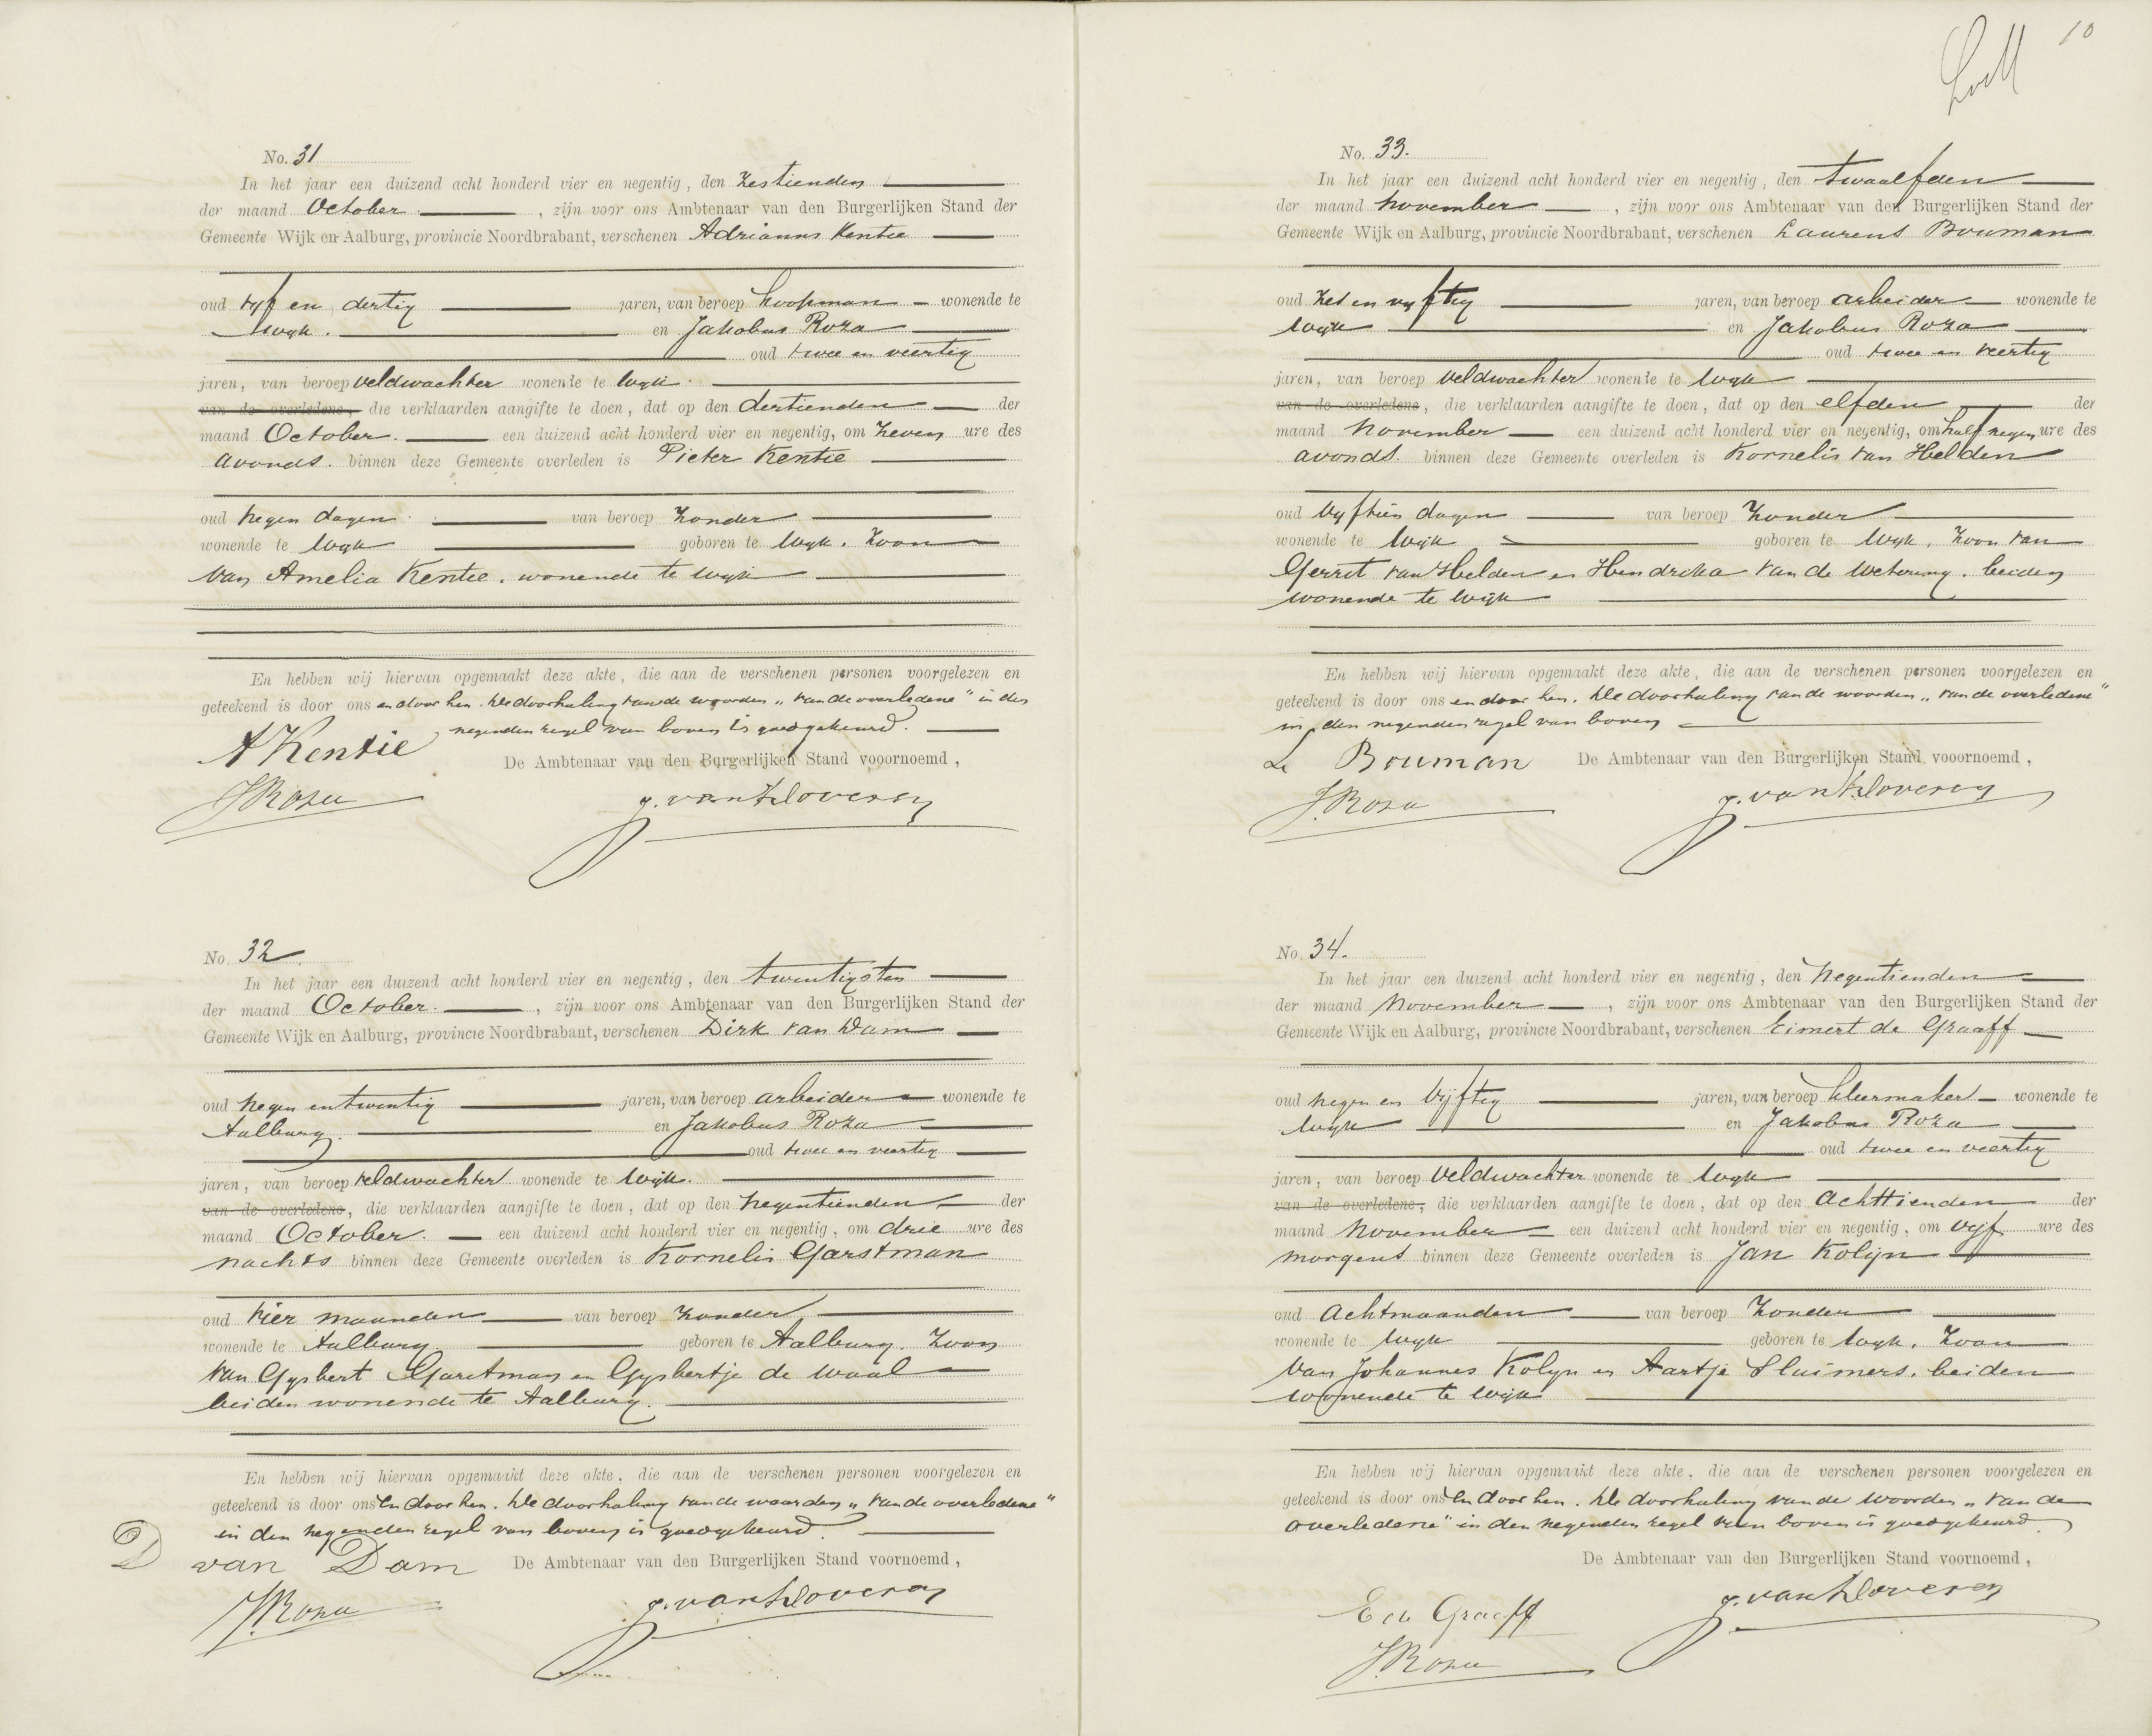 No. 31
In het jaar een duizend acht honderd vier en negentig, den Zestienden
der maand October, zijn voor ons Ambtenaar van den Burgerlijken Stand der
Gemeente Wijk en Aalburg, provincie Noordbrabant, verschenen Adrianus Kentie
oud vijf en dertig jaren, van beroep koopman wonende te
Wijk. en Jakobus Roza
oud twee en veertig
jaren, van beroep veldwachter wonende te Wijk.
van de overledene, die verklaarden aangifte te doen, dat op den dertienden der
maand October. een duizend acht honderd vier en negentig, om zeven ure des
avonds. binnen deze Gemeente overleden is Pieter Kentie
oud negen dagen van beroep zonder
wonende te Wijk geboren te Wijk. Zoon
van Amelia Kentie. wonende te Wijk
En hebben wij hiervan opgemaakt deze akte, die aan de verschenen personen voorgelezen en
geteekend is door ons en door hen. De doorhaling van de woorden „van de overledene" in den
negenden regel van boven is goedgekeurd.
A Kentie
De Ambtenaar van den Burgerlijken Stand vooornoemd,
J Roza
No. 32
In het jaar een duizend acht honderd vier en negentig, den twintigsten
der maand October., zijn voor ons Ambtenaar van den Burgerlijken Stand der
Gemeente Wijk en Aalburg, provincie Noordbrabant, verschenen Dirk van Dam
oud negen en twintig jaren, van beroep arbeider wonende te
Aalburg. en Jakobus Roza
oud twee en veertig
jaren, van beroep veldwachter wonende te Wijk.
van de overledene, die verklaarden aangifte te doen, dat op den negentienden der
maand October. een duizend acht honderd vier en negentig, om drie ure des
nachts binnen deze Gemeente overleden is Kornelis Garstman
oud vier maanden van beroep zonder
wonende te Aalburg geboren te Aalburg. Zoon
van Gysbert Garstman en Gysbertje de Waal
beiden wonende te Aalburg.
En hebben wij hiervan opgemaakt deze akte, die aan de verschenen personen voorgelezen en
geteekend is door ons en door hen. De doorhaling van de woorden „van de overledene"
in den negenden regel van boven is goedgekeurd.
D van Dam
De Ambtenaar van den Burgerlijken Stand voornoemd,
J Roza
10
No. 33.
In het jaar een duizend acht honderd vier en negentig, den twaalfden
der maand November, zijn voor ons Ambtenaar van den Burgerlijken Stand der
Gemeente Wijk en Aalburg, provincie Noordbrabant, verschenen Laurens Bouman
oud zes en vyftig jaren, van beroep arbeider wonende te
Wijk en Jakobus Roza
oud twee en veertig
jaren, van beroep veldwachter wonende te Wijk
van de overledene, die verklaarden aangifte te doen, dat op den elfden der
maand November een duizend acht honderd vier en negentig, om half negen ure des
avonds. binnen deze Gemeente overleden is Kornelis van Helden
oud vyftien dagen van beroep zonder
wonende te Wijk geboren te Wyk, Zoon van
Gerrit van Helden en Hendrika van de Wetering. beiden
wonende te Wijk
En hebben wij hiervan opgemaakt deze akte, die aan de verschenen personen voorgelezen en
geteekend is door ons en door hen. De doorhaling van de woorden „van de overledene"
in den negenden regel van boven
L Bouman
De Ambtenaar van den Burgerlijken Stand vooornoemd,
J. Roza
No. 34.
In het jaar een duizend acht honderd vier en negentig, den negentienden
der maand November, zijn voor ons Ambtenaar van den Burgerlijken Stand der
Gemeente Wijk en Aalburg, provincie Noordbrabant, verschenen Eimert de Graaff
oud negen en vijftig jaren, van beroep kleermaker wonende te
Wyk en Jakobus Roza
oud twee en veertig
jaren, van beroep veldwachter wonende te Wyk
van de overledene, die verklaarden aangifte te doen, dat op den Achttienden der
maand November een duizend acht honderd vier en negentig, om vijf ure des
morgens binnen deze Gemeente overleden is Jan Kolijn
oud Acht maanden van beroep zonder
wonende te Wyk geboren te Wyk, Zoon
van Johannes Kolyn en Aartje Sluimers. beiden
wonende te Wijk
En hebben wij hiervan opgemaakt deze akte, die aan de verschenen personen voorgelezen en
geteekend is door ons en door hen. De doorhaling van de woorden „van de
overledene" in den negenden regel van boven is goedgekeurd
De Ambtenaar van den Burgerlijken Stand voornoemd,
E de Graaff
J. Roza